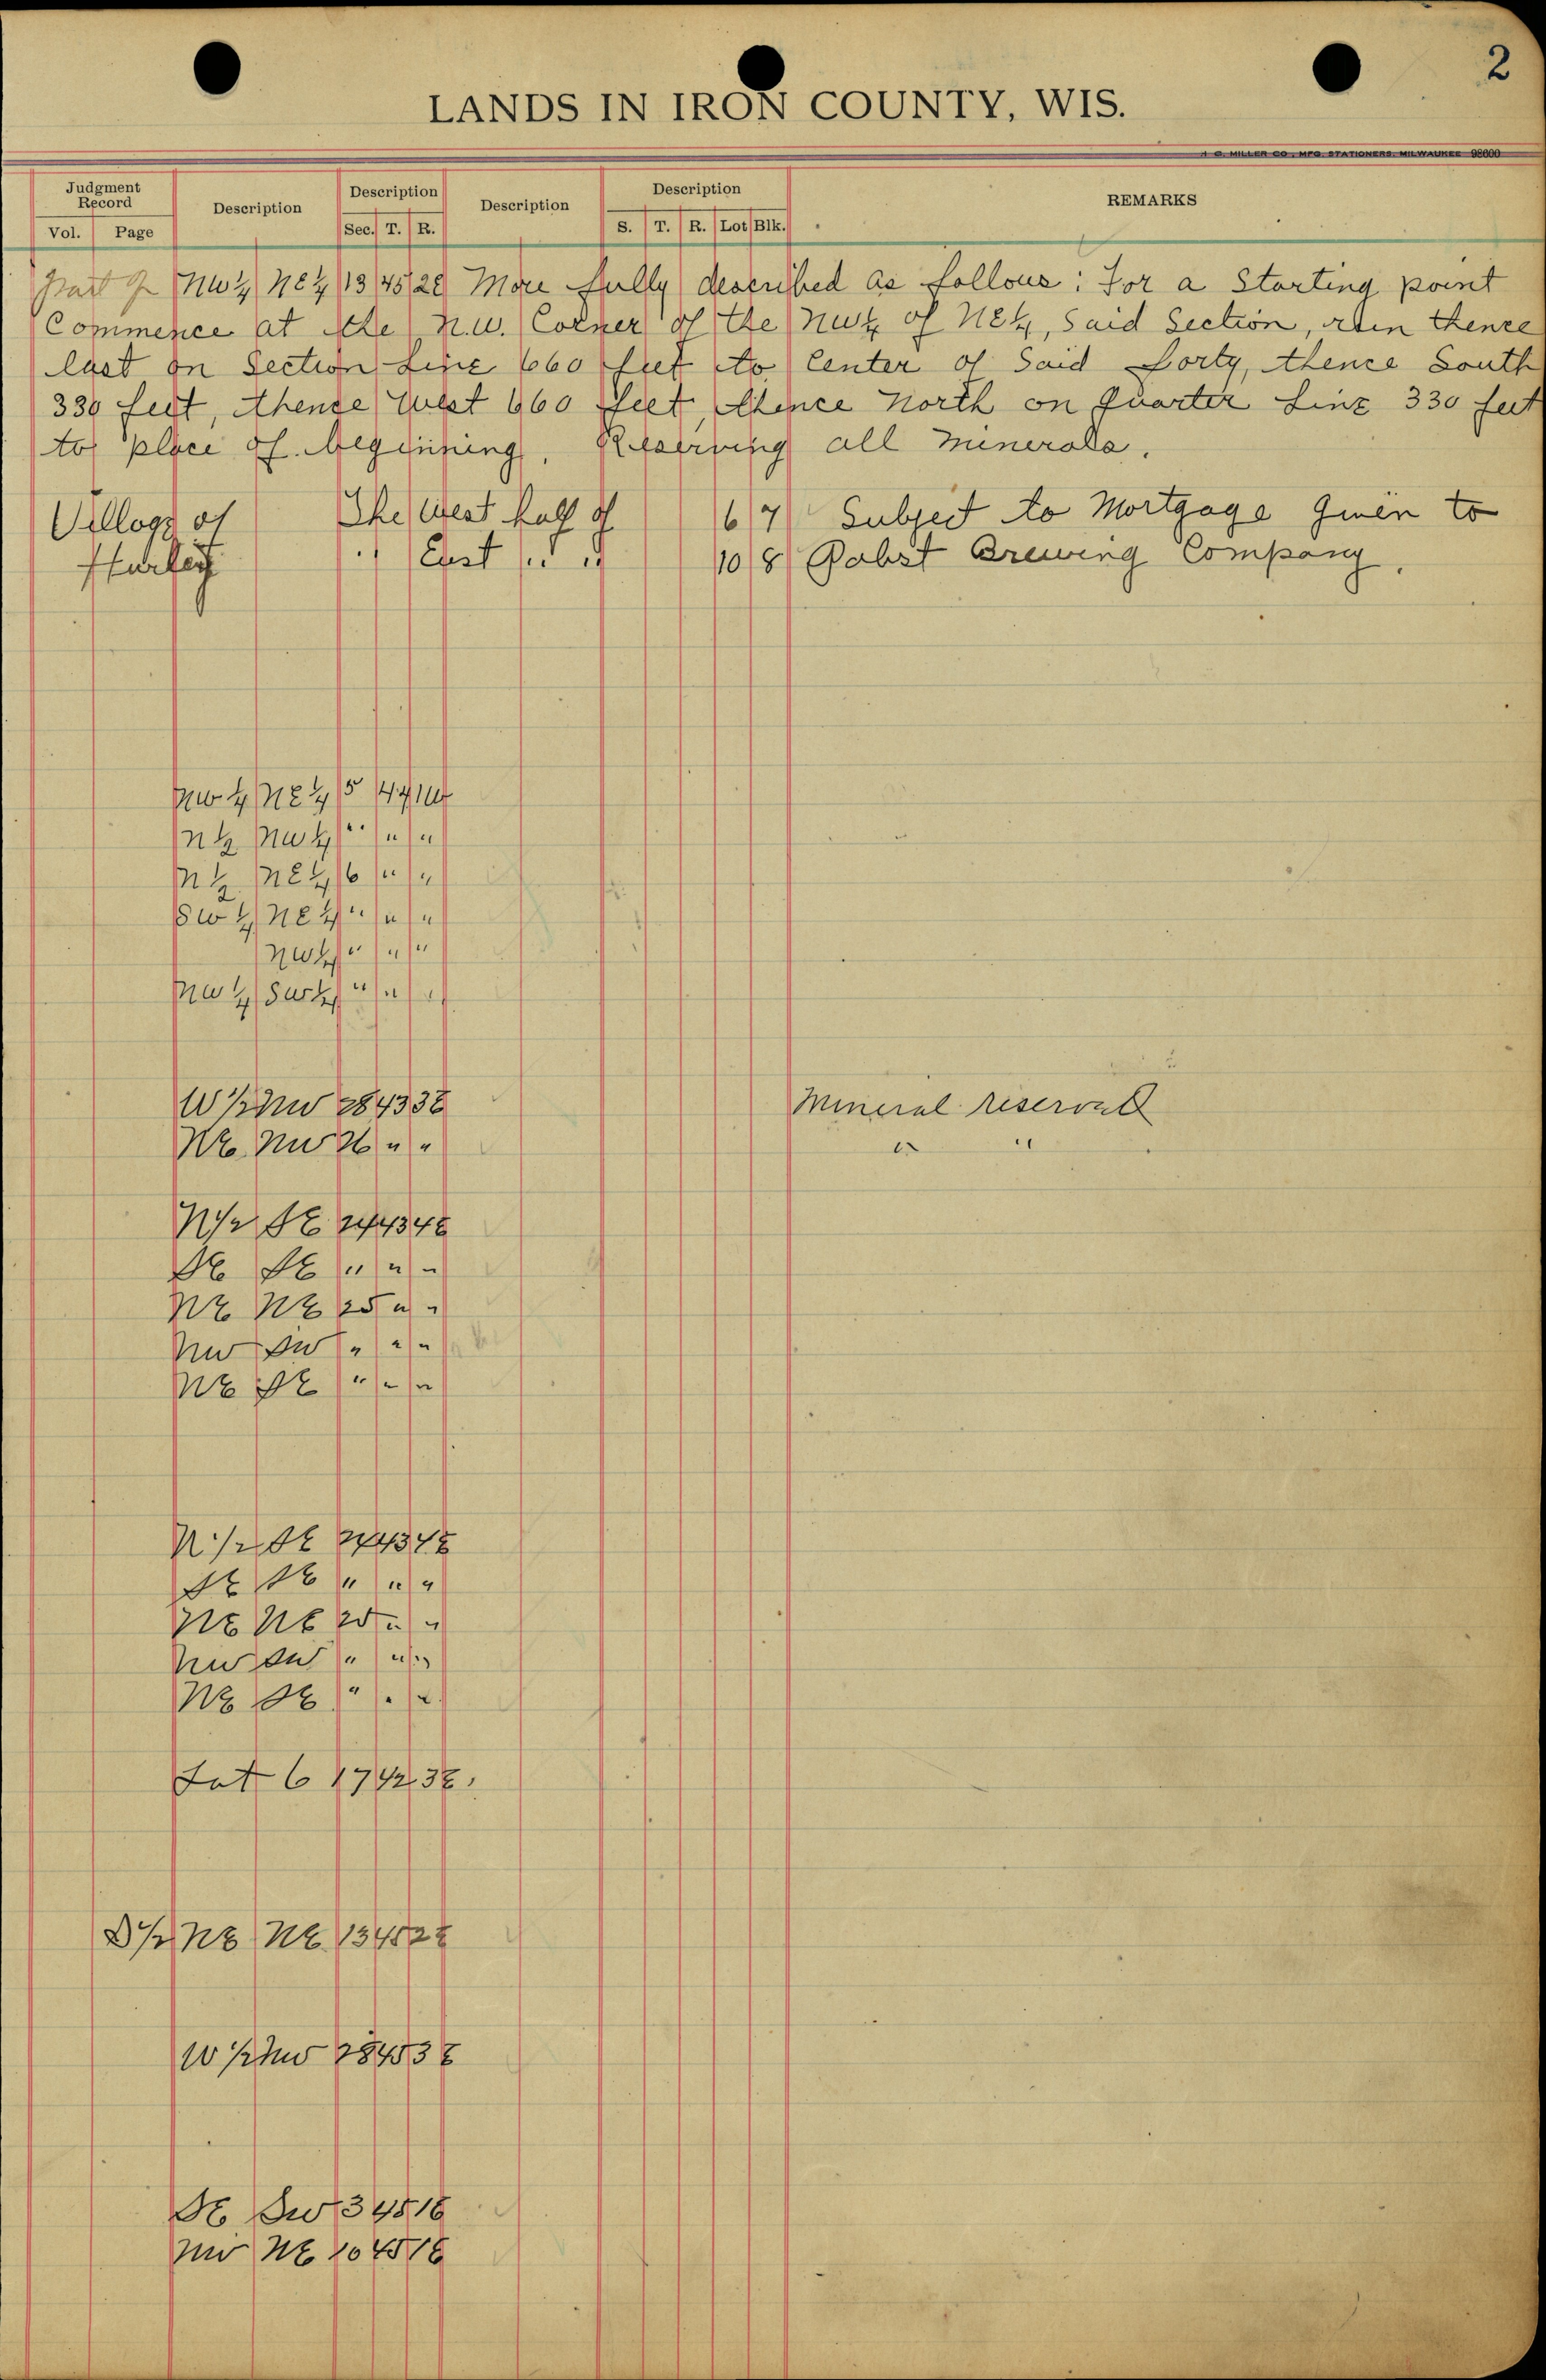 2
LANDS IN IRON COUNTY, WIS.
MILLER CO., MFG. STATIONERS, MILWAUKEE 98600
Judgment Record Description Description Description Description REMARKS
Vol. Page Sec. T. R. S. T. R. Lot Blk.
Part of NW¼ NE¼ 13 45 2E More fully described as follows: For a Starting point
Commence at the N.W. Corner of the NW¼ of NE¼, Said Section, run thence
East on Section Line 660 feet to Center of Said forty, thence South
330 feet, thence West 660 feet, thence North on Quarter Line 330 feet
to place of beginning. Reserving all minerals.
Village of The West half of 6 7 Subject to Mortgage Given to
Hurley " East " " 10 8 Pabst Brewing Company.
NW¼ NE¼ 5 44 1E
N½ NW¼ " " "
N½ NE¼ 6 " "
SW¼ NE¼ " " "
NW¼ " " "
NW¼ SW¼ " " "
W½ NW 28 43 3E Mineral reserved
NE NW 26 " " " "
N½ SE 24 43 4E
SE SE " " "
NE NE 25 " "
NW SW " " "
NE SE " " "
N½ SE 24 43 4E
SE SE " " "
NE NE 25 " "
NW SW " " "
NE SE " " "
Lot 6 17 42 3E.
S½ NE NE 13 45 2E
W½ NW 28 43 3E
SE SW 3 45 1E
NW NE 10 45 1E